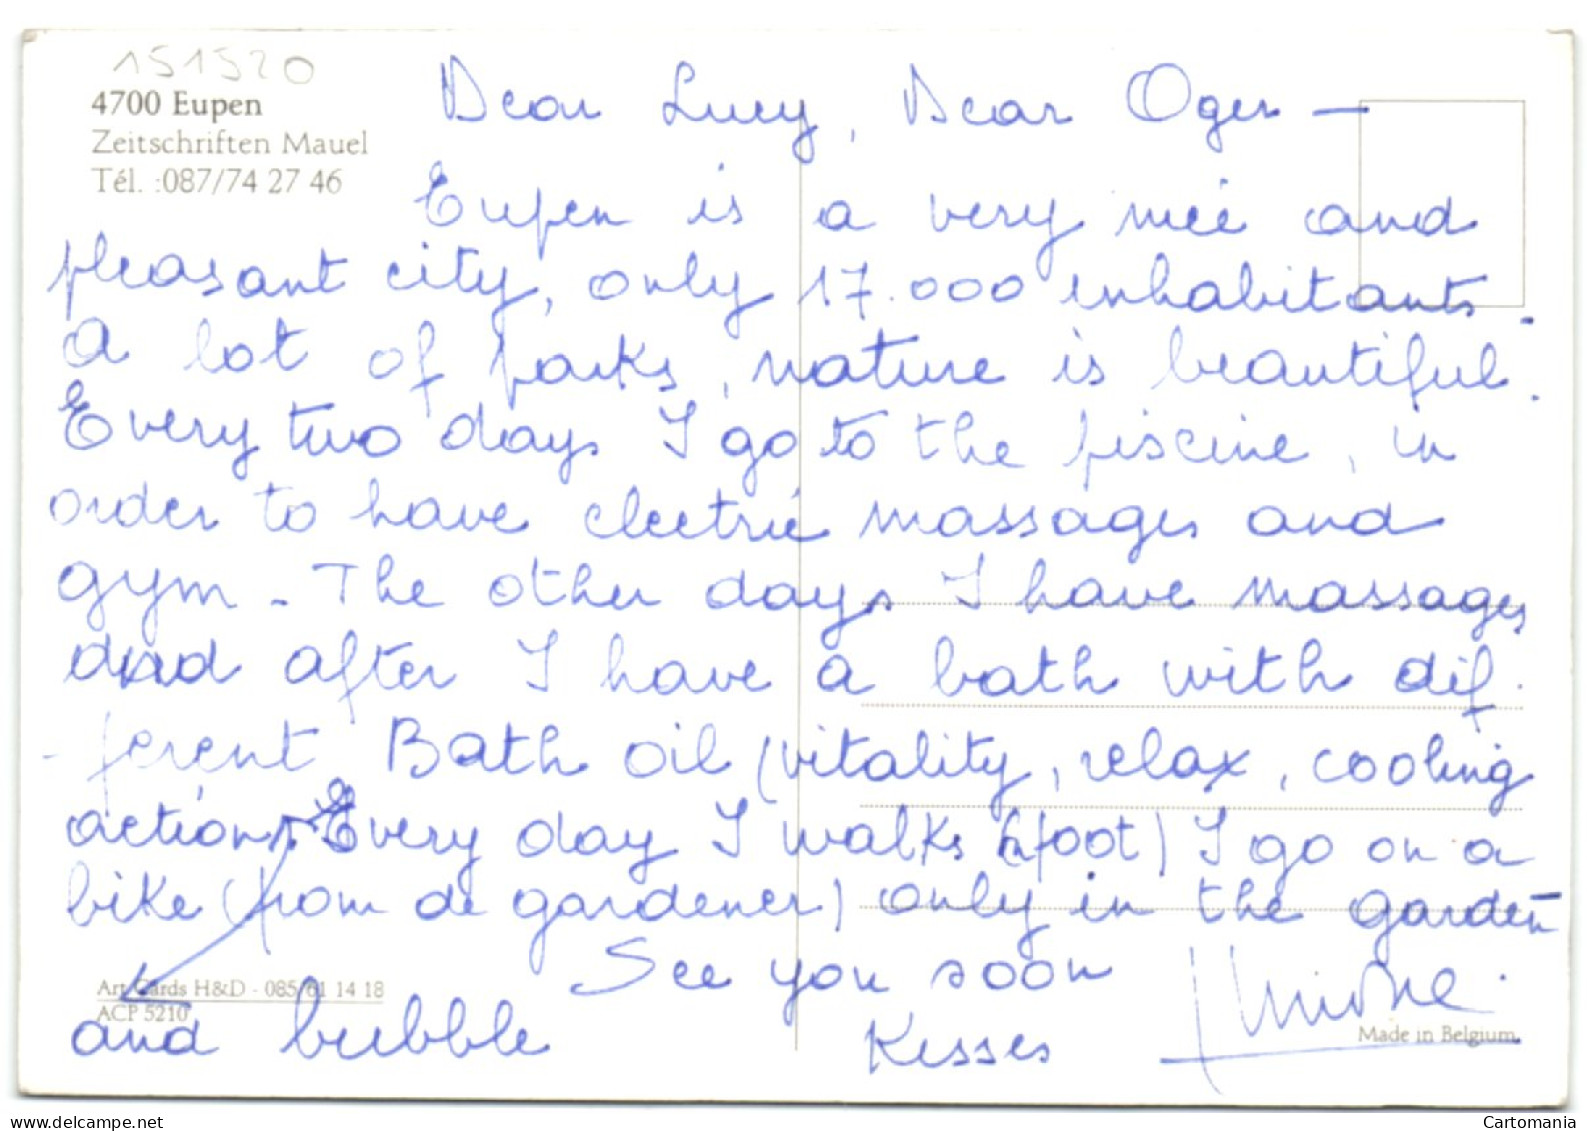 151520
4700 Eupen
Zeitschriften Mauel
Tél. :087/74 27 46
Dear Lucy, Dear Oger —
Eupen is a very nice and
pleasant city, only 17.000 inhabitants.
a lot of parks, nature is beautiful.
Every two days I go to the piscine, in
order to have electric massages and
gym - The other days I have massages
and after I have a bath with dif
-ferent Bath oil (vitality, relax, cooling
action Every day I walks (foot) I go on a
bike (from de gardener) only in the garden
See you soon
and bubble
Kisses
Art Cards H&D - 085/61 14 18
ACP 5210
Made in Belgium
Cartomania
http://www.delcampe.net